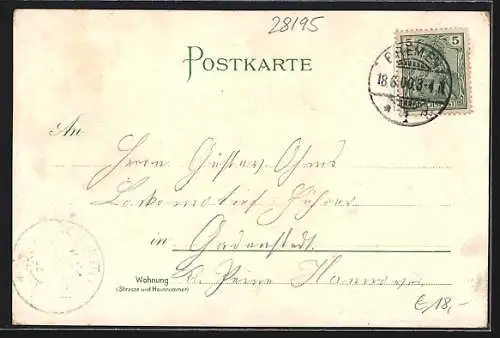 28195
POSTKARTE
5 5
BREMEN
18.6.00.3-4 N
* 1
An
Herrn Gustav Ohms
Lokomotiv Führer
in Gadenstedt
Wohnung
(Strasse und Hausnummer)
b. Peine Hannover
€ 18,-